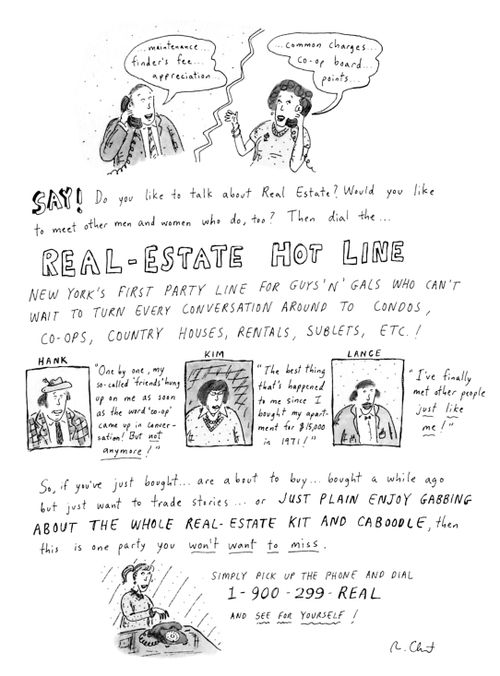 ...maintenance...
finder's fee...
appreciation...
...common charges...
co-op board...
points...
SAY! Do you like to talk about Real Estate? Would you like
to meet other men and women who do, too? Then dial the...
REAL-ESTATE HOT LINE
NEW YORK'S FIRST PARTY LINE FOR GUYS 'N' GALS WHO CAN'T
WAIT TO TURN EVERY CONVERSATION AROUND TO CONDOS,
CO-OPS, COUNTRY HOUSES, RENTALS, SUBLETS, ETC.!
HANK
"One by one, my
so-called 'friends' hung
up on me as soon
as the word 'co-op'
came up in conver-
sation! But not
anymore!"
KIM
"The best thing
that's happened
to me since I
bought my apart-
ment for $15,000
in 1971!"
LANCE
"I've finally
met other people
just like
me!"
So, if you've just bought... are about to buy... bought a while ago
but just want to trade stories... or JUST PLAIN ENJOY GABBING
ABOUT THE WHOLE REAL-ESTATE KIT AND CABOODLE, then
this is one party you won't want to miss.
SIMPLY PICK UP THE PHONE AND DIAL
1-900-299-REAL
AND SEE FOR YOURSELF!
R. Chst